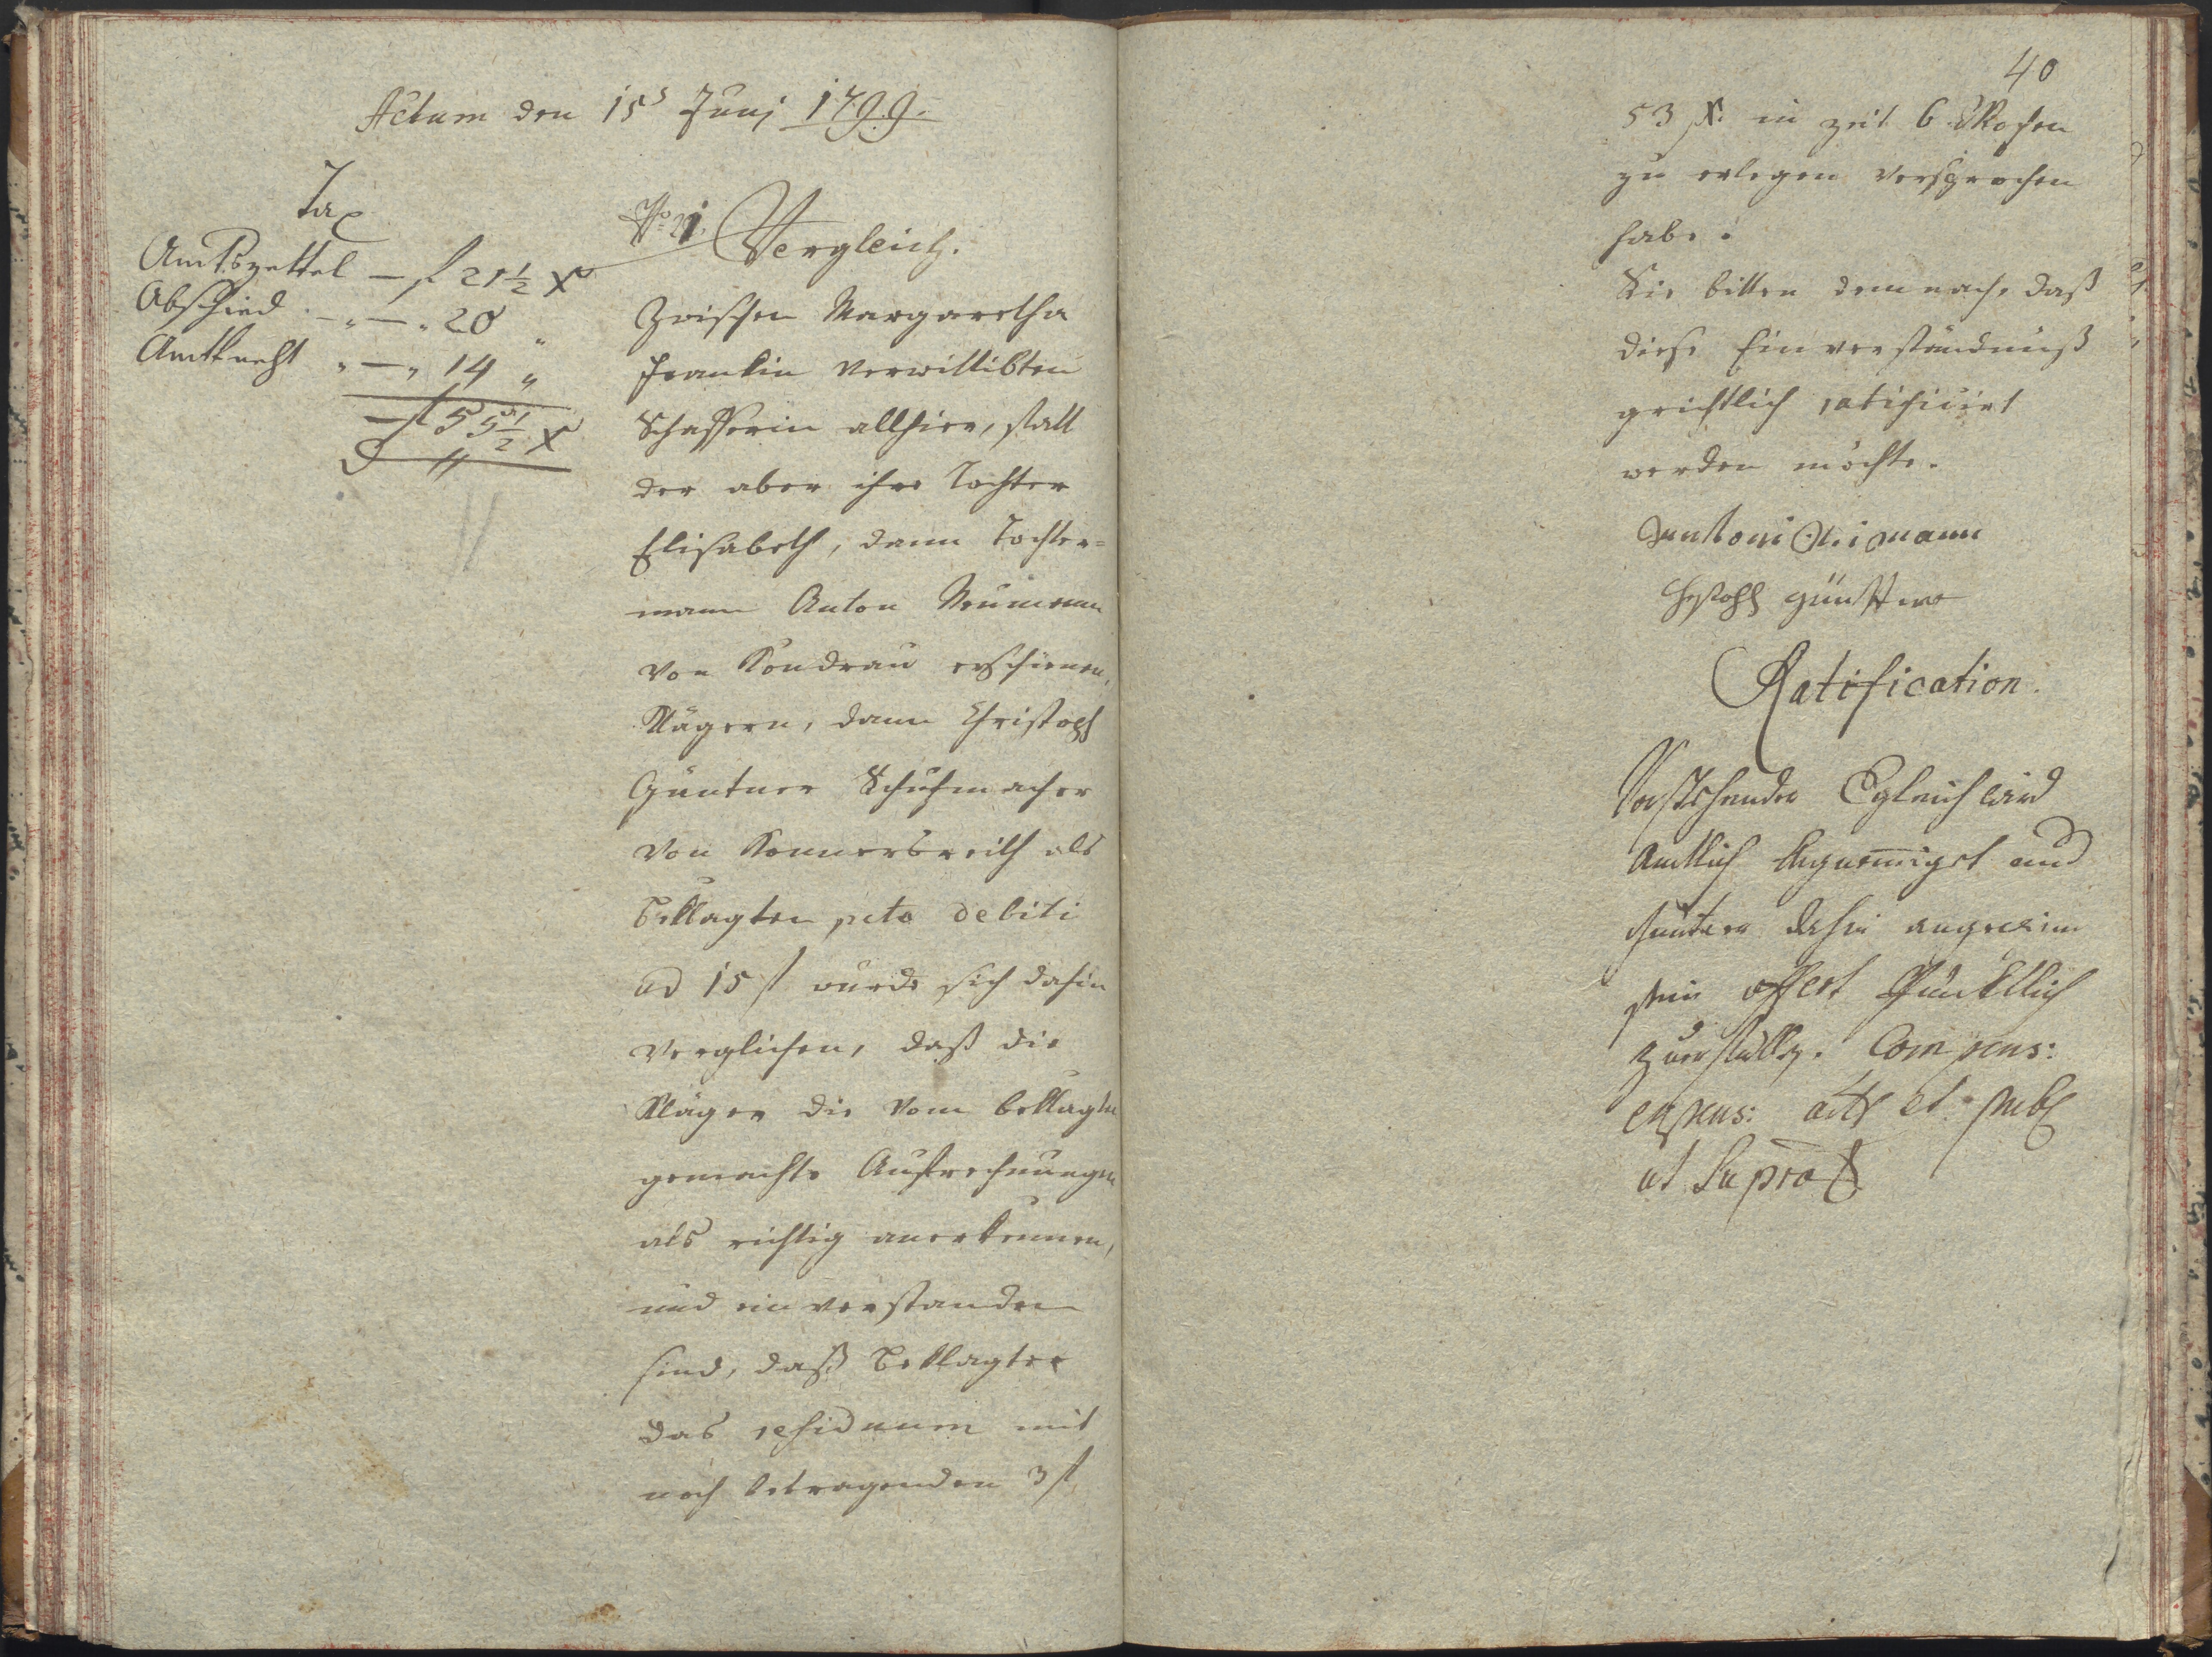 Actum den 15t Junj 1799.
Tax
Amtszettel — f 21½ X
Abschied — „ 20 „
Amtknecht „ — „ 14 „
— f 55½ X
No 21. Vergleich.
Zwischen Margaretha
Franklin verwittibten
Schafferin allhier, statt
der aber ihre Tochter
Elisabeth, dann Tochter=
mann Anton Neumann
von Kondrau erschienen,
Klägern, dann Christoph
Güntner Schuhmacher
von Konnersreith als
Beklagten pcto debiti
ad 15 f wurde sich dahin
verglichen, daß die
Kläger die vom beklagten
gemachte Aufrechnungen
als richtig anerkennen,
und einverstanden
sind, daß Beklagter
das residuum mit
noch betragenden 3 f
40
53 X: in zeit 6 Wochen
zu erlegen versprochen
habe.
Sie bitten demnach, daß
diese Einverständnuß
grichtlich ratificirt
werden möchte.
Antoni Neimann
Ratification.
Vorstehender Vgleich wird
Amtlich begnemiget und
dahin angewisen
sein offert Pünktlich
zuerfülln. Compens:
expens: acts et publ
ut Supra